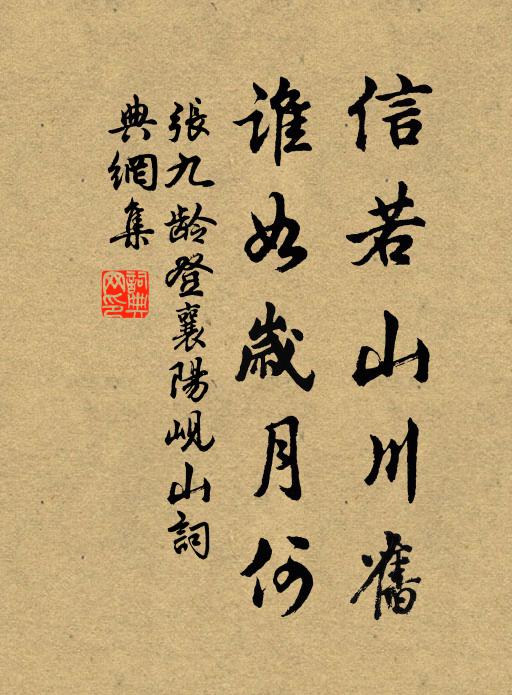 信若山川舊
誰如歲月何
張九齡登襄陽峴山詞
典網集
詞典網印